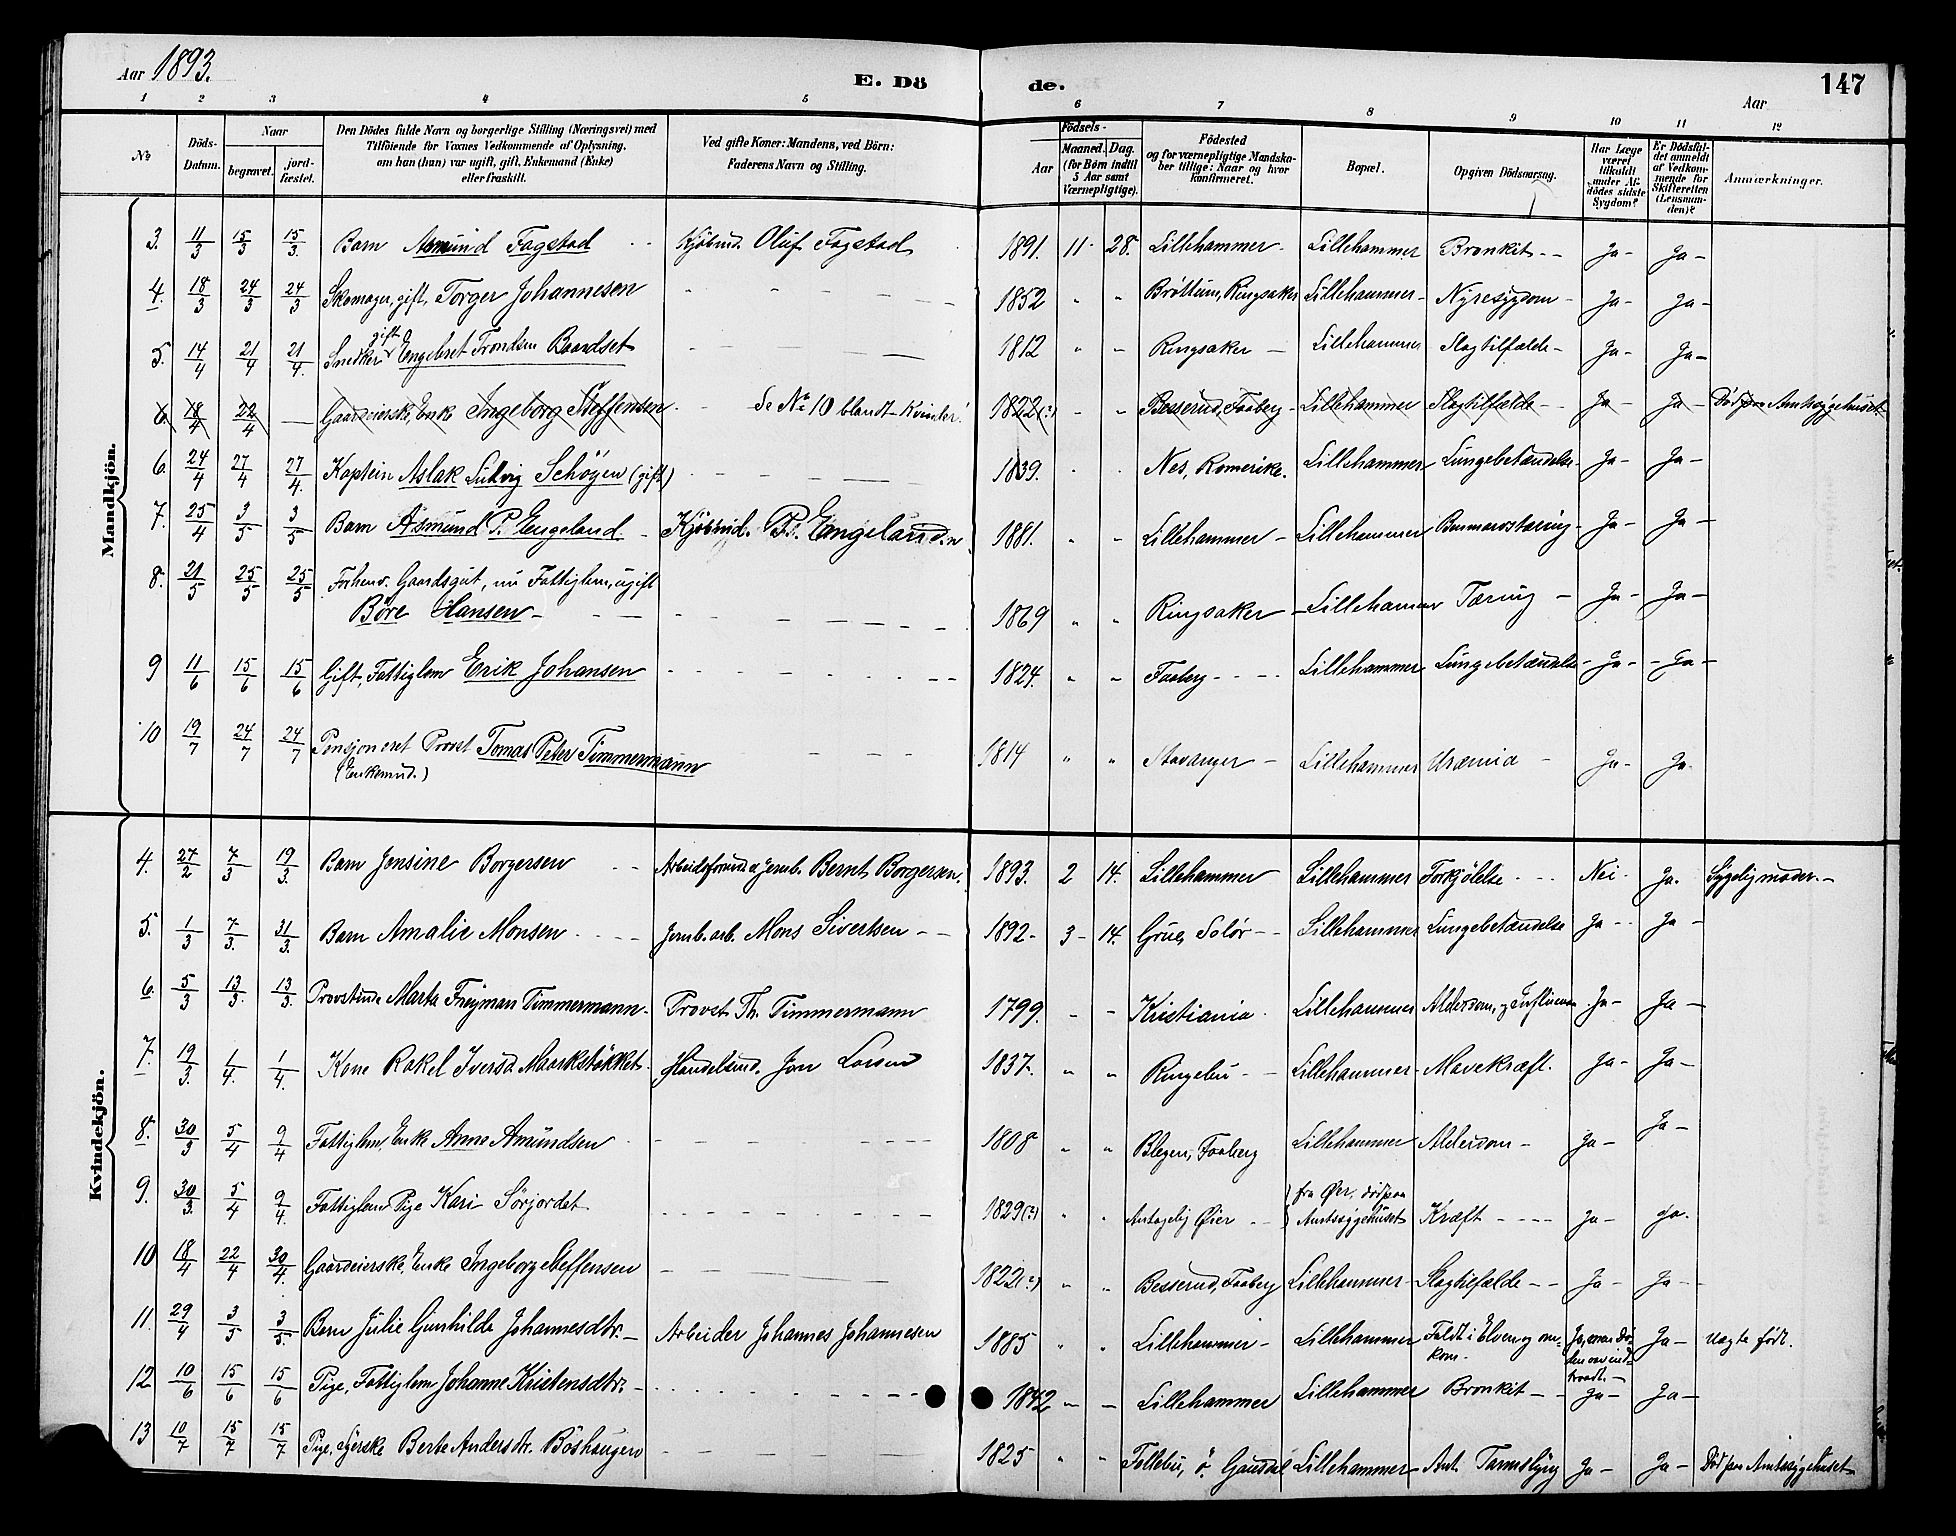 Aar 1893. E. Dö de. 147
Aar
1 2 3 4 5 6 7 8 9 10 11 12
No. Döds-Datum. Naar begravet. jord-fæstet. Den Dödes fulde Navn og borgerlige Stilling (Næringsvei) med Tilföiende for Voxnes Vedkommende af Oplysning, om han (hun) var ugift, gift, Enkemand (Enke) eller fraskilt. Ved gifte Koner: Mandens, ved Börn: Faderens Navn og Stilling. Födsels- Aar Maaned. Dag. (for Börn indtil 5 Aar samt Værnepligtige). Födested og for værnepligtige Mandskaber tillige: Naar og hvor konfirmeret. Bopæl. Opgiven Dödsaarsag. Har Læge været tilkaldt under Afdödes sidste Sygdom? Er Dödsfaldet anmeldt af Vedkommende for Skifteretten (Lensmanden)? Anmærkninger.
Mandkjön.
3. 11/3 15/3 15/3. Barn Asmund Fagstad Kjöbmd. Oluf Fagstad 1891. 11 28. Lillehammer Lillehammer Bronkit Ja Ja
4. 18/3 24/3 24/3 Skomager, gift, Torger Johannesen 1852 " " Bröttum, Ringsaker Lillehammer Nyresygdom Ja Ja
5. 14/4 21/4 21/4. Snedker gift Engebret Trondsen Baardset 1812 " " Ringsaker Lillehammer Slagtilfælde Ja Ja
6. 18/4 22/4 — Gaardeierske, Enke Ingeborg Steffensen. Se No 10 blandt Kvinder! 1822(?) " " Besserud, Faaberg Lillehammer Slagtilfælde Ja Ja Död paa Amtssygehuset
6. 24/4 27/4 27/4. Kaptein Aslak Ludvig Schöyen (gift) 1839. Nes, Romerike. Lillehammer Lungebetændelse Ja Ja
7. 25/4 3/5 3/5 Barn Asmund P. Engeland. Kjöbmd. P. Engeland 1881. " " Lillehammer Lillehammer Ja Ja
8. 21/5 25/5 25/5 Forhenv. Gaardsgut, nu Fattiglem, ugift
Böre Hansen 1869 " " Ringsaker Lillehammer Tæring Ja Ja
9 11/6 15/6 15/6 Gift, Fattiglem Erik Johansen 1824. " " Faaberg Lillehammer Lungebetændelse Ja Ja
10 19/7 24/7 24/7 Pensjoneret Provst Tomas Peter Timmermann 1814 " " Stavanger Lillehammer Uræmia Ja Ja.
(Enkemd.)
Kvindekjön.
4. 27/2 7/3 19/3. Barn Jensine Borgersen Bernt Borgersen. 1893. 2 14. Lillehammer Lillehammer Forkjölelse Nei Ja. Sygelig moder.
5. 1/3 7/3. 31/3. Barn Amalie Monsen Jernb.arb. Mons Sivertsen 1892 3 14. Grue, Solör Lillehammer Lungebetændelse Ja Ja
6. 5/3 13/3. 13/3. Provstinde Marta Freyman Timmermann. Provst Th. Timmermann 1799. " Kristiania. Lillehammer Alderdom, og Influensa Ja Ja
7. 19/3. 1/4. 1/4. Kone Rakel Iversd. Maarkstökket. Handelsmd. Jon Larsen 1837. " " Ringebu Lillehammer Mavekræft. Ja Ja
8. 30/3 5/4 9/4 Fattiglem, Enke Anne Amundsen 1808 " " Blegen, Faaberg Lillehammer Alderdom Ja Ja
9. 30/3. 5/4 9/4. Fattiglem Pige Kari Sörjordet 1829(?) " " Antagelig Øier fra Øier, död paa Amtssygehuset Kræft Ja Ja.
10 18/4 22/4 30/4. Gaardeierske, Enke Ingeborg Steffensen 1822(?) " " Besserud, Faaberg Lillehammer Slagtilfælde Ja Ja
11. 29/4 3/5 3/5. Barn Julie Gunhilde Johannesdtr. Arbeider Johannes Johannesen 1885 " " Lillehammer Lillehammer Faldt i Elven og omkom. Ja, men Döden var indtraadt. Ja Uægte födt.
12 10/6 15/6 15/6 Pige, Fattiglem Johanne Kristensdtr. 1842 Lillehammer Lillehammer Bronkit Ja Ja
13 10/7 15/7 15/7 Pige, Syerske Berte Andersdtr. Böshaugen 1825 " " Follebu, ö. Gausdal Lillehammer Ant. Tarmslyng Ja Ja Död paa Amtssygehuset